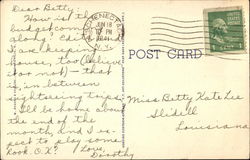 Dear Betty:
How is the
budget coming
along? Edith &
I are keeping
house, too (believe
it or not) — that
is, in between
sightseeing trips.
I'll be home about
the end of the
month, and I ex-
pect to play some
Rook. O.K? Love
Dorothy
SCHENECTADY
JUN 18
PM
1941
N.Y.
POST CARD
Miss Betty Kate Lee
Slidell
Louisiana